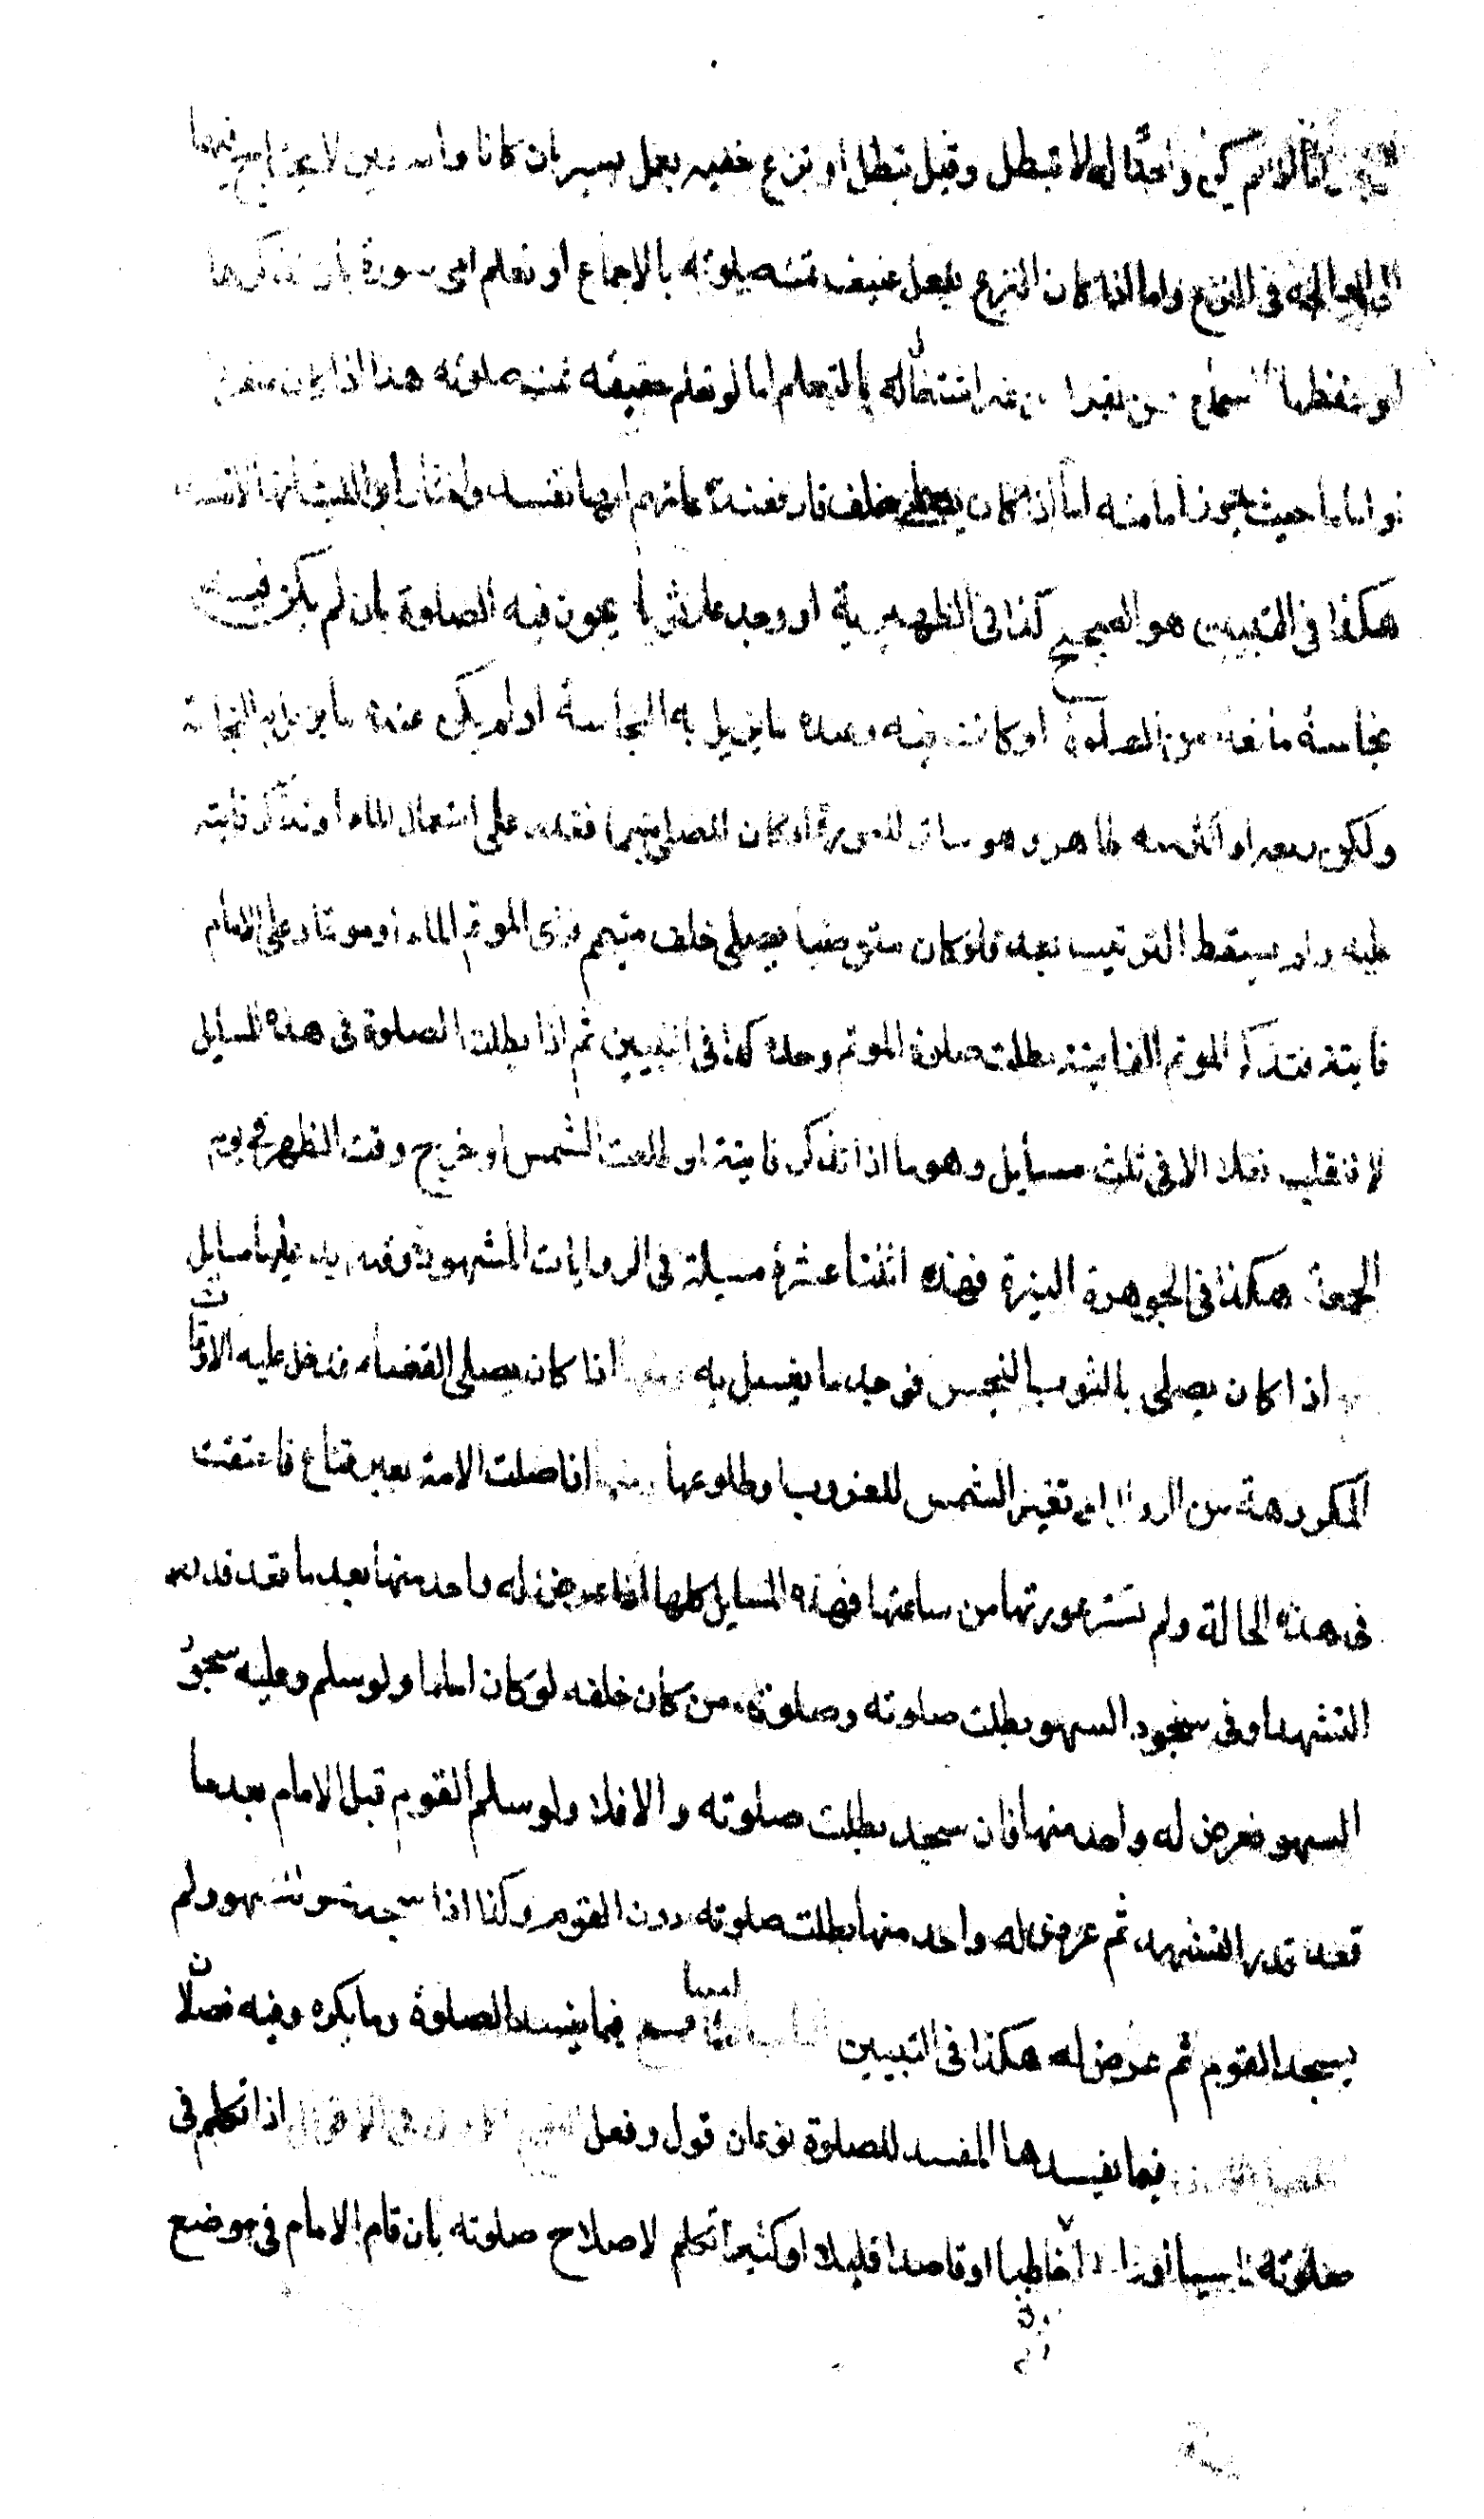 لا تبطل وقيل تبطل او نزع خفيه بعمل يسير بان كانا واسعين لا يحتاج فيهما
الى المعالجة فى النزع واما اذا كان النزع بفعل عنيف تمت صلوته بالاجماع او تعلم امى سورة بان تذكرها
او حفظها بالسماع من غير اشتغاله بالتعلم اما لو تعلم حقيقة تمت صلوته هذا اذا كان منفردا
او اماما حيث يجوز امامته اما اذا كان يصلى خلف قارئ فعند عامتهم انها تفسد واختار ابو الليث انها لا تفسد
هكذا فى التبيين هو الصحيح كذا فى الظهيرية او وجد عار ثوبا يجوز فيه الصلوة بان لم يكن فيه
نجاسة مانعة من الصلوة او كانت فيه وعنده ما يزيل به النجاسة او لم يكن عنده ما يزيل به النجاسة
ولكن ربعه او اكثر منه طاهر وهو ساتر للعورة او كان المصلى متيمما فقدر على استعمال الماء او تذكر فايتة
عليه ولم يسقط الترتيب بعد ولو كان متوضيا يصلى خلف متيمم فراى الموتم الماء او موتما وعلى الامام
فايتة فتذكر الموتم الفايتة بطلت صلوة الموتم وحده كذا فى التبيين ثم اذا بطلت الصلوة فى هذه المسايل
لا تنقلب نفلا الا فى ثلث مسايل وهو ما اذا تذكر فايتة او طلعت الشمس او خرج وقت الظهر فى يوم
الجمعة هكذا فى الجوهرة النيرة فهذه اثنتا عشرة مسيلة فى الروايات المشهورة وقد يزيد عليها مسايل
منها اذا كان يصلى بالثوب النجس فوجد ما يغسل به ومنها اذا كان يصلى القضاء فدخل عليه الاوقات
المكروهة من الزوال او تغير الشمس للغروب او طلوعها ومنها اذا صلت الامة بغير قناع فاعتقت
فى هذه الحالة ولم تستر عورتها من ساعتها فهذه المسايل كلها اذا عرض له واحد منها بعد ما قعد قدر
التشهد او فى سجود السهو بطلت صلوته وصلوة من كان خلفه لو كان اماما ولو سلم وعليه سجود
السهو فعرض له واحد منها فان سجد بطلت صلوته والا فلا ولو سلم القوم قبل الامام بعد ما
قعد قدر التشهد ثم عرض له واحد منها بطلت صلوته دون القوم وكذا اذا سجد هو للسهو ولم
يسجد القوم ثم عرض له هكذا فى التبيين الباب السابع فيما يفسد الصلوة وما يكره وفيه فصلان
الفصل الاول فيما يفسدها المفسد للصلوة نوعان قول وفعل النوع الاول فى الاقوال اذا تكلم فى
صلوته ناسيا او عامدا خاطيا او قاصدا قليلا او كثيرا تكلم لاصلاح صلوته بان قام الامام فى موضع